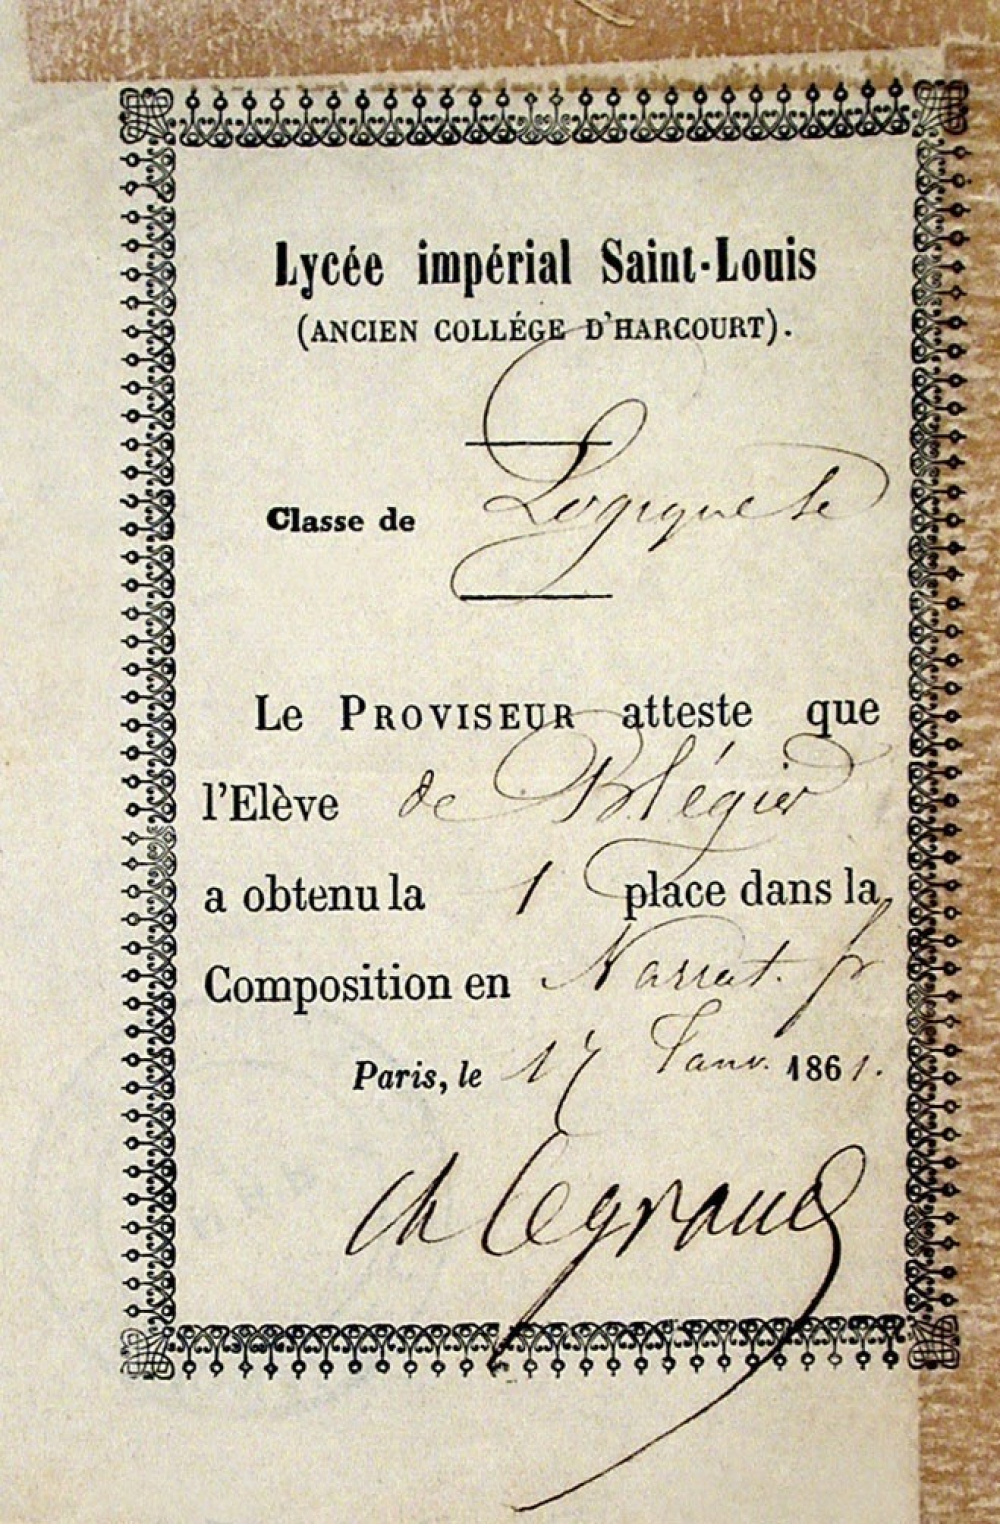 Lycée impérial Saint-Louis
(ANCIEN COLLÉGE D'HARCOURT).
Classe de Logique
Le PROVISEUR atteste que
l'Elève de Blégier
a obtenu la 1 place dans la
Composition en Narrat. fr
Paris, le 17 Janv. 1861.
Ch Legrand